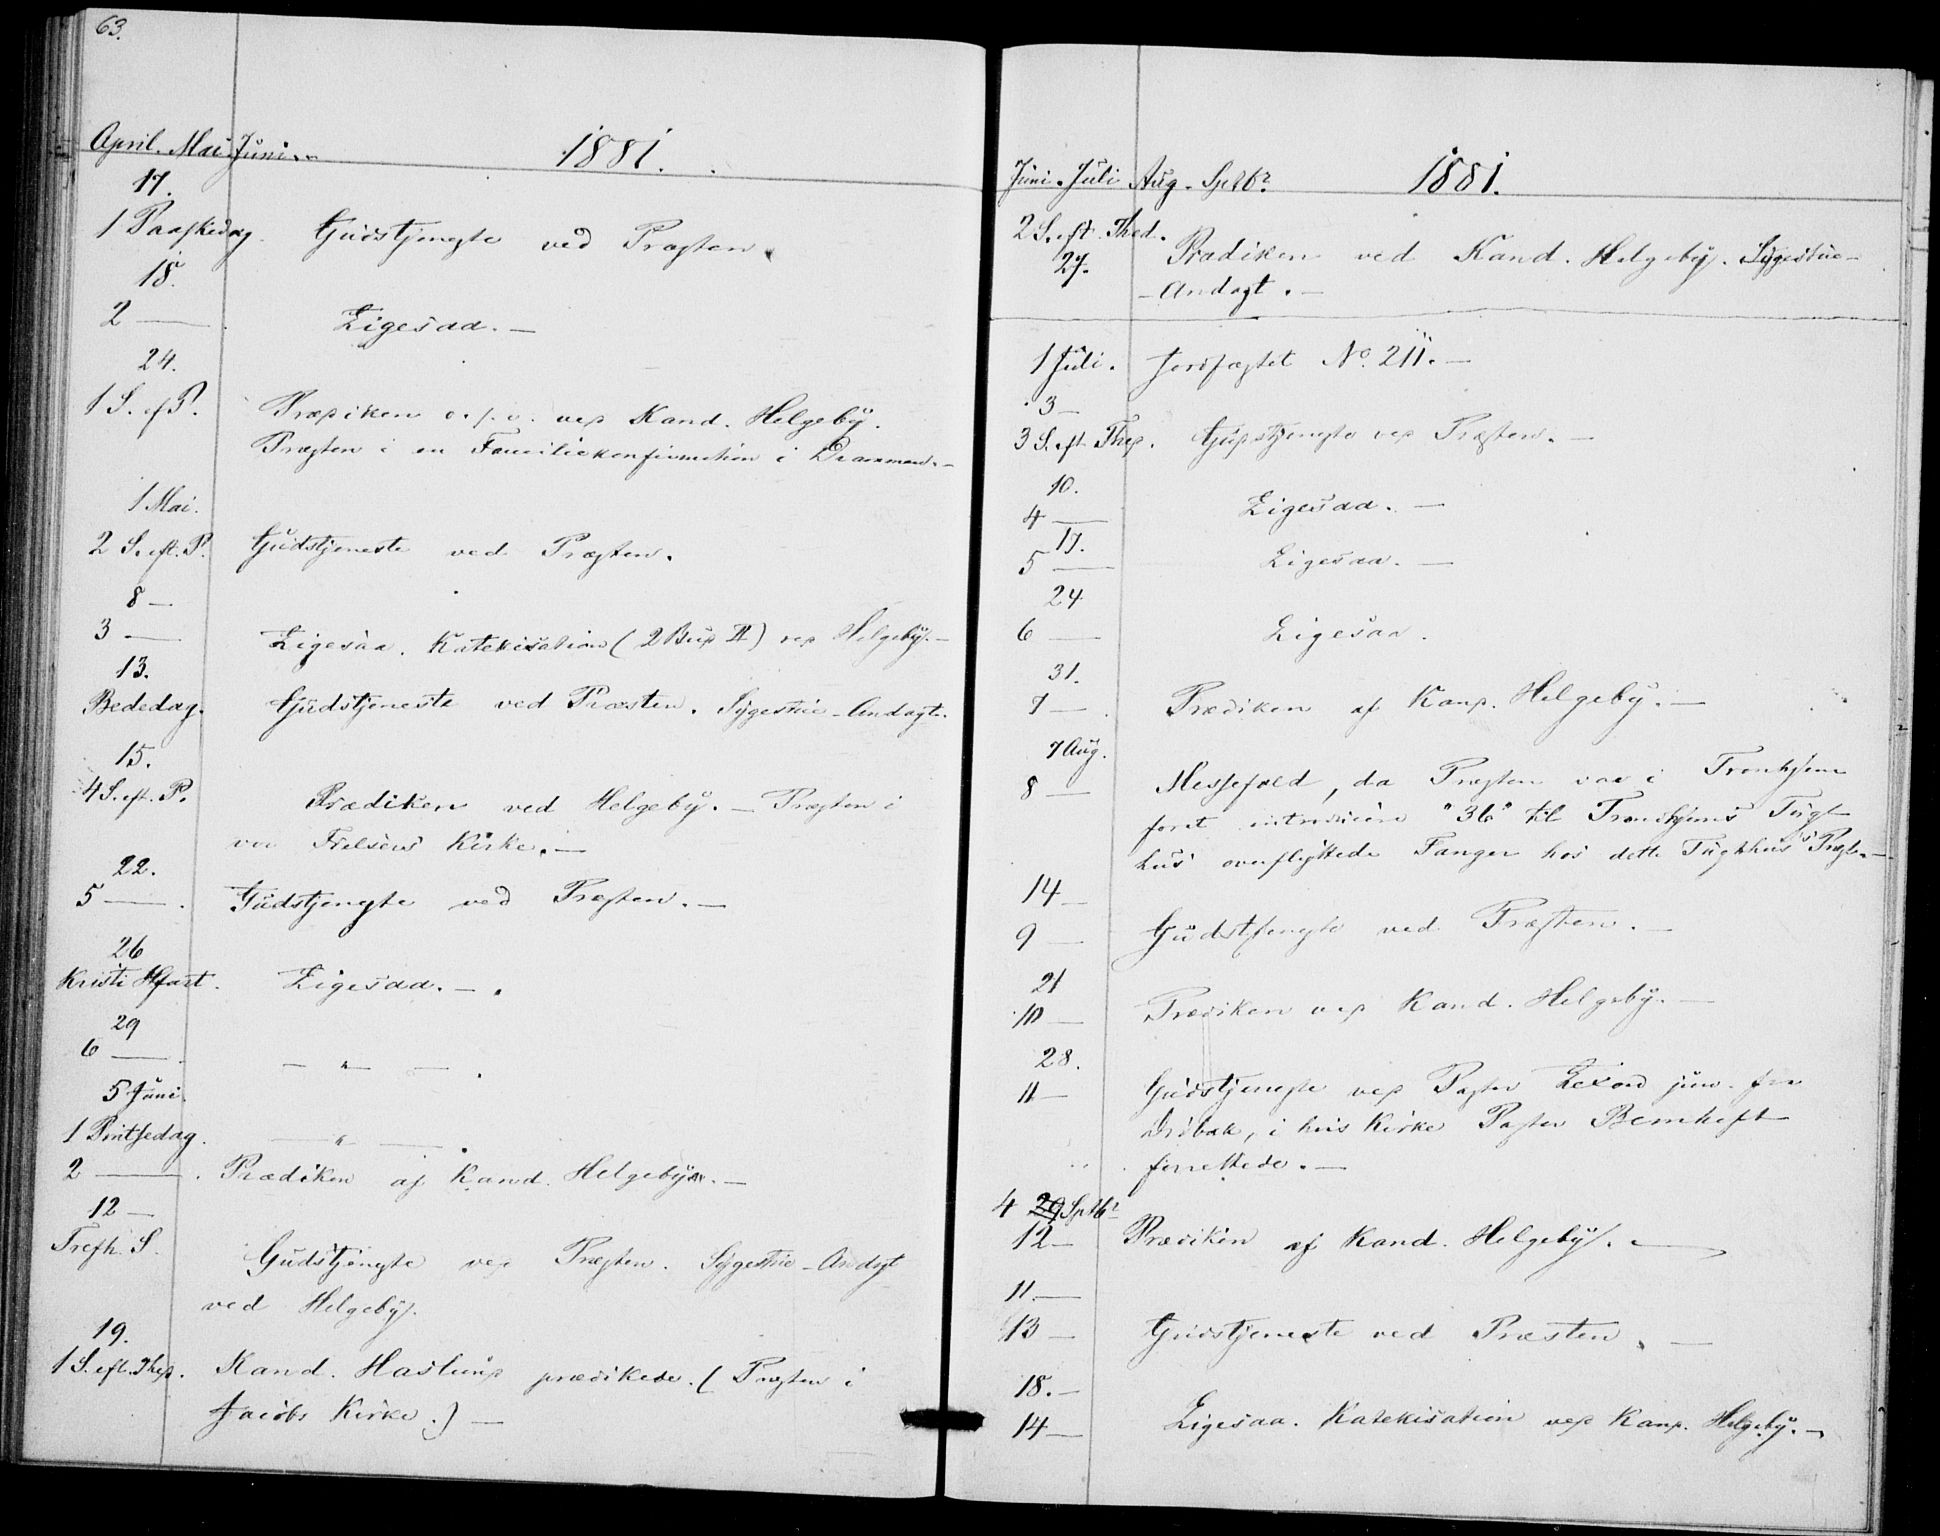 63.
April. Mai. Juni. 1881.
17.
1 Paaskedag. Gudstjeneste ved Præsten.
18.
2 — Ligesaa. —
24.
1 S. ef P. Prædiken o. s. v. ved Kand. Helgeby.
Præsten i en Familiekonfirmation i Drammen. —
1 Mai.
2 S. eft. P. Gudstjeneste ved Præsten.
8 —
3 — Ligesaa. Katekisation (2 Bud II) ved Helgeby. —
13.
Bededag. Gudstjeneste ved Præsten. Sygestue-Andagt.
15.
4 S. eft. P. Prædiken ved Helgeby. — Præsten i
vor Frelsers Kirke. —
22.
5 — . Gudstjeneste ved Præsten. —
26
Kristi Hfart. Ligesaa. — .
29
6 — . — " — .
5 Juni.
1 Pintsedag. — " — .
2 — . Prædiken af Kand. Helgeby. —
12 —
Trefh. S. Gudstjeneste ved Præsten. Sygestue-Andagt
ved Helgeby.
19.
1 S. eft. Thed. Kand. Haslund prædikede. (Præsten i
Jacobs Kirke.) —
Juni. Juli Aug. Septbr. 1881.
2 S. eft. Thed.
27. Prædiken ved Kand. Helgeby. Sygestue-
-Andagt. —
1 Juli. Jordfæstet No. 211. —
3 —
3 S. eft. Thed. Gudstjeneste ved Præsten. —
10.
4 — Ligesaa. —
17.
5 — Ligesaa. —
24
6 — Ligesaa.
31.
7 — Prædiken af Kand. Helgeby. —
7 Aug.
8 — Messefald, da Præsten var i Tronhjem
foret introducere "36" til Trondhjems Tugt-
hus overflyttede Fanger hos dette Tugthus's Præst. —
14 —
9 — Gudstjeneste ved Præsten. —
21
10 — Prædiken ved Kand. Helgeby. —
28.
11 — Gudstjeneste ved Pastor Lexow jun. fra
Drøbak, i hvis Kirke Pastor Bernhoft
forrettede. —
4 29 Septbr
12 — Prædiken af Kand. Helgeby. —
11. —
13 — Gudstjeneste ved Præsten. —
18. —
14 — Ligesaa. Katekisation ved Kand. Helgeby. —